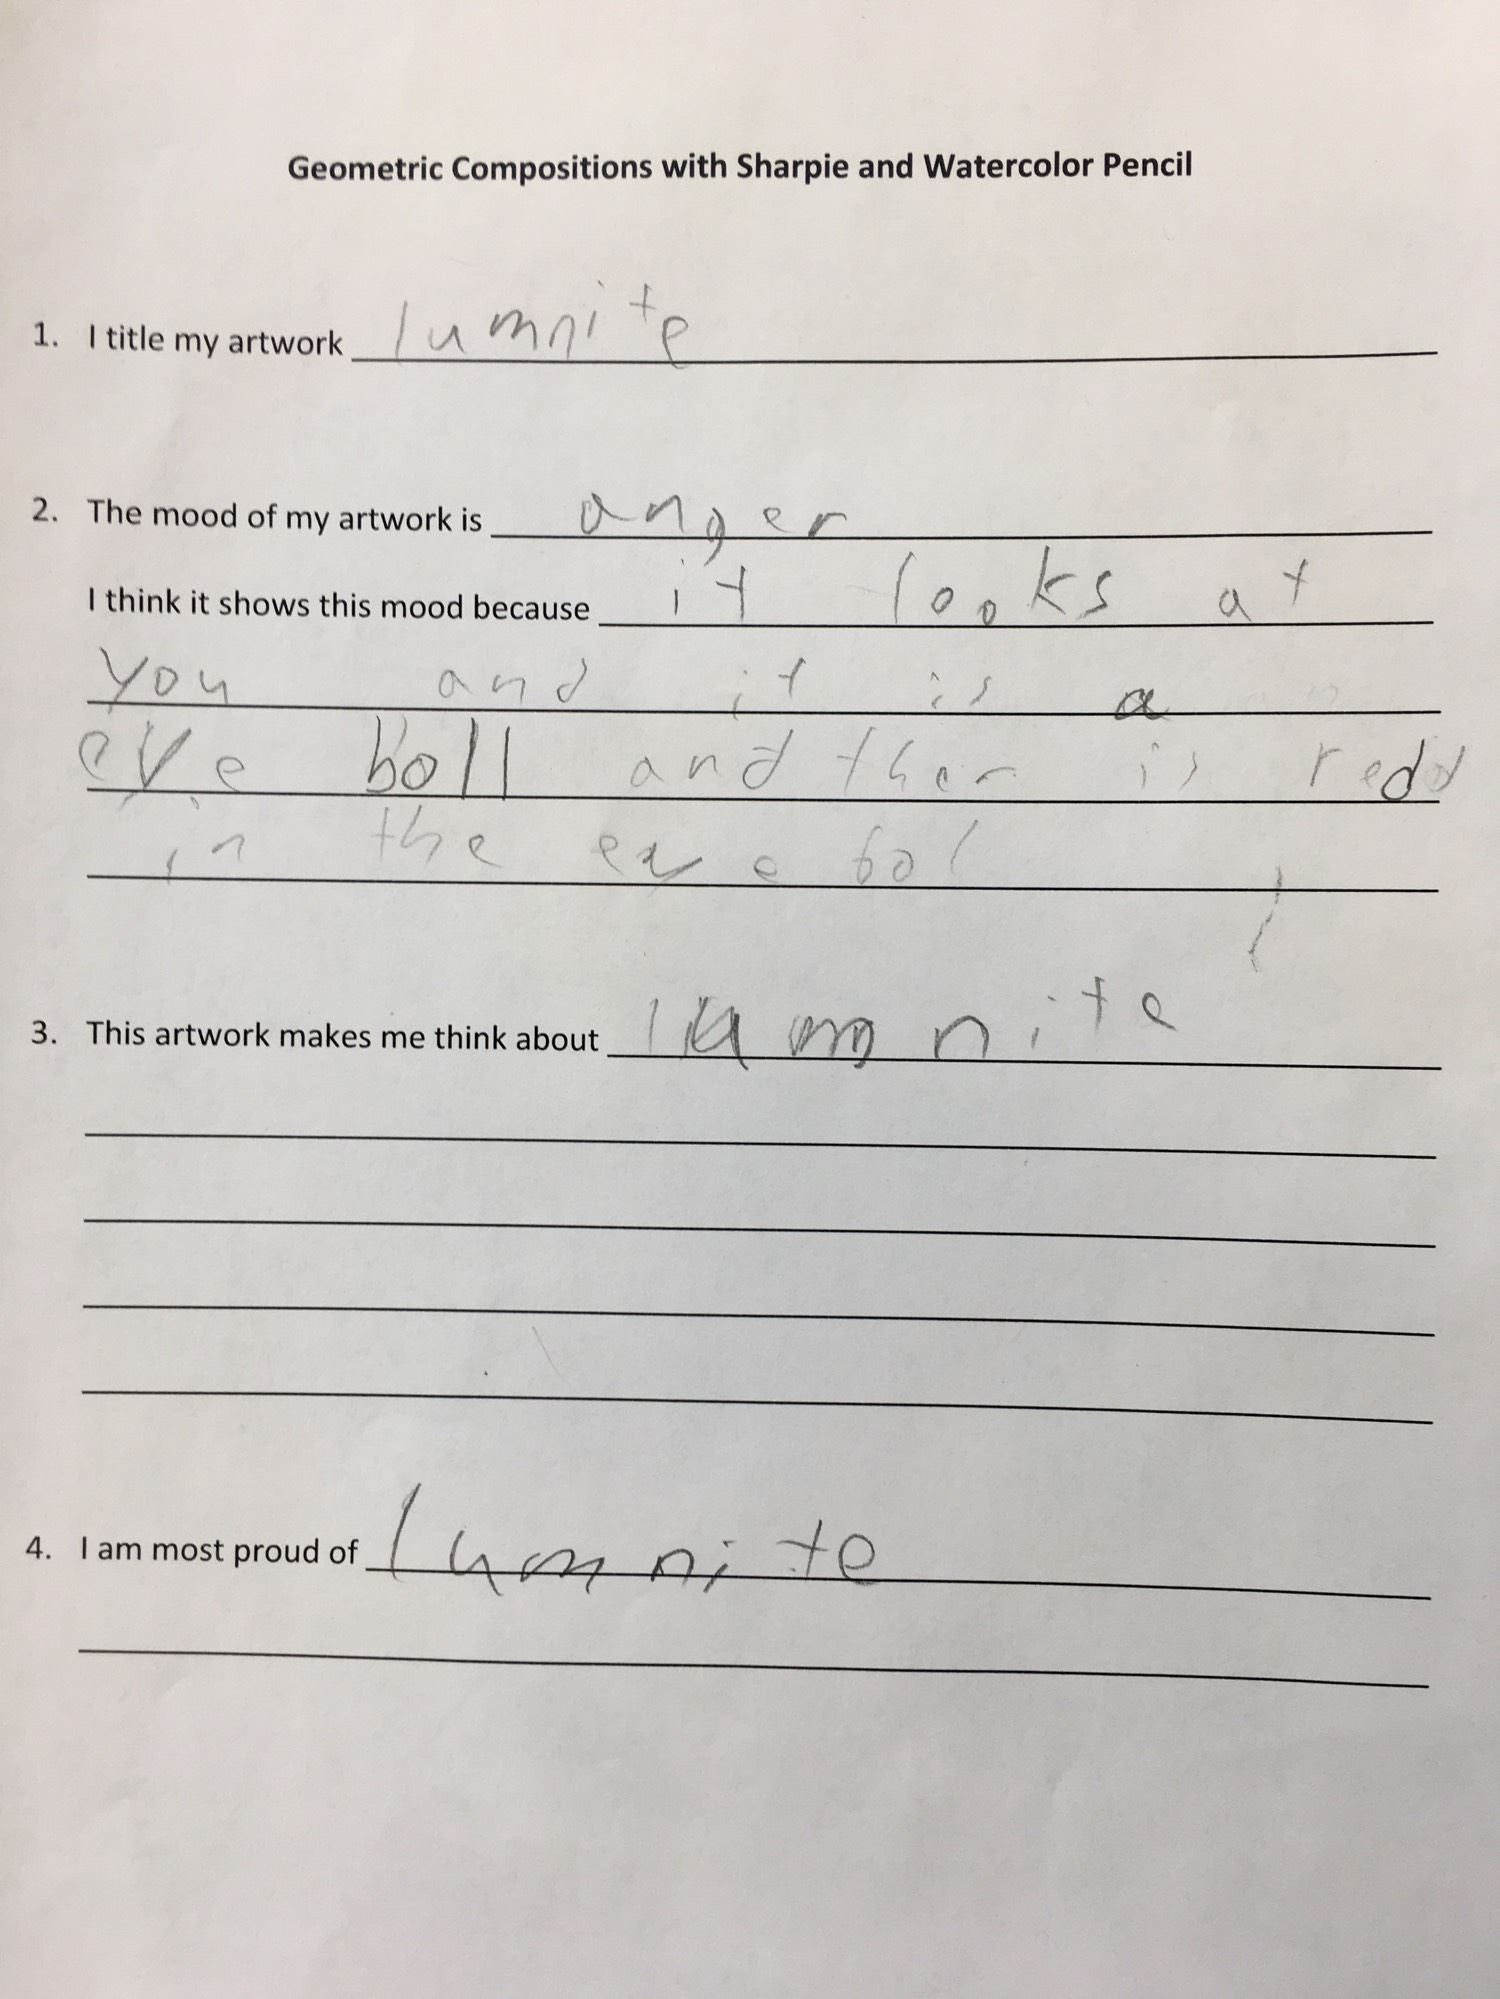 Geometric Compositions with Sharpie and Watercolor Pencil
1. I title my artwork lumnite
2. The mood of my artwork is anger
I think it shows this mood because it looks at
you and it is a
eye boll and ther is red
in the eye bol
3. This artwork makes me think about lumnite
4. I am most proud of lumnite